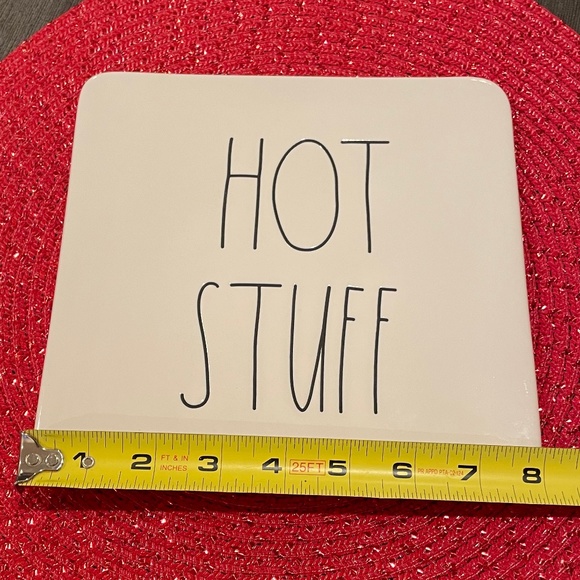 HOT
STUFF
1 2 FT & IN INCHES 3 4 25FT 5 6 7 8